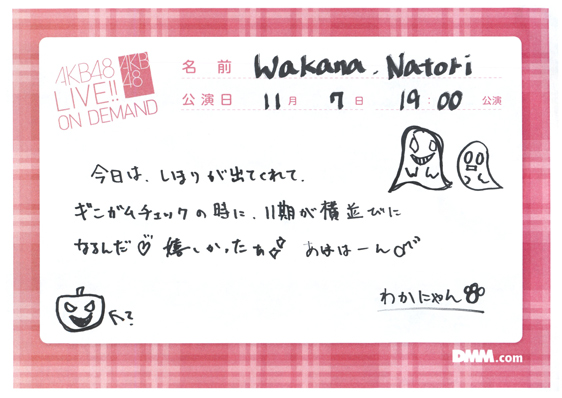 AKB48
LIVE!!
ON DEMAND
AKB
48
名前 Wakana. Natori
公演日 11月 7日 19:00 公演
今日は、しほりが出てくれて、
ギンガムチェックの時に、11期が横並びに
なるんだ♡ 嬉しかったぁ あははーん
わかにゃん
?
DMM.com